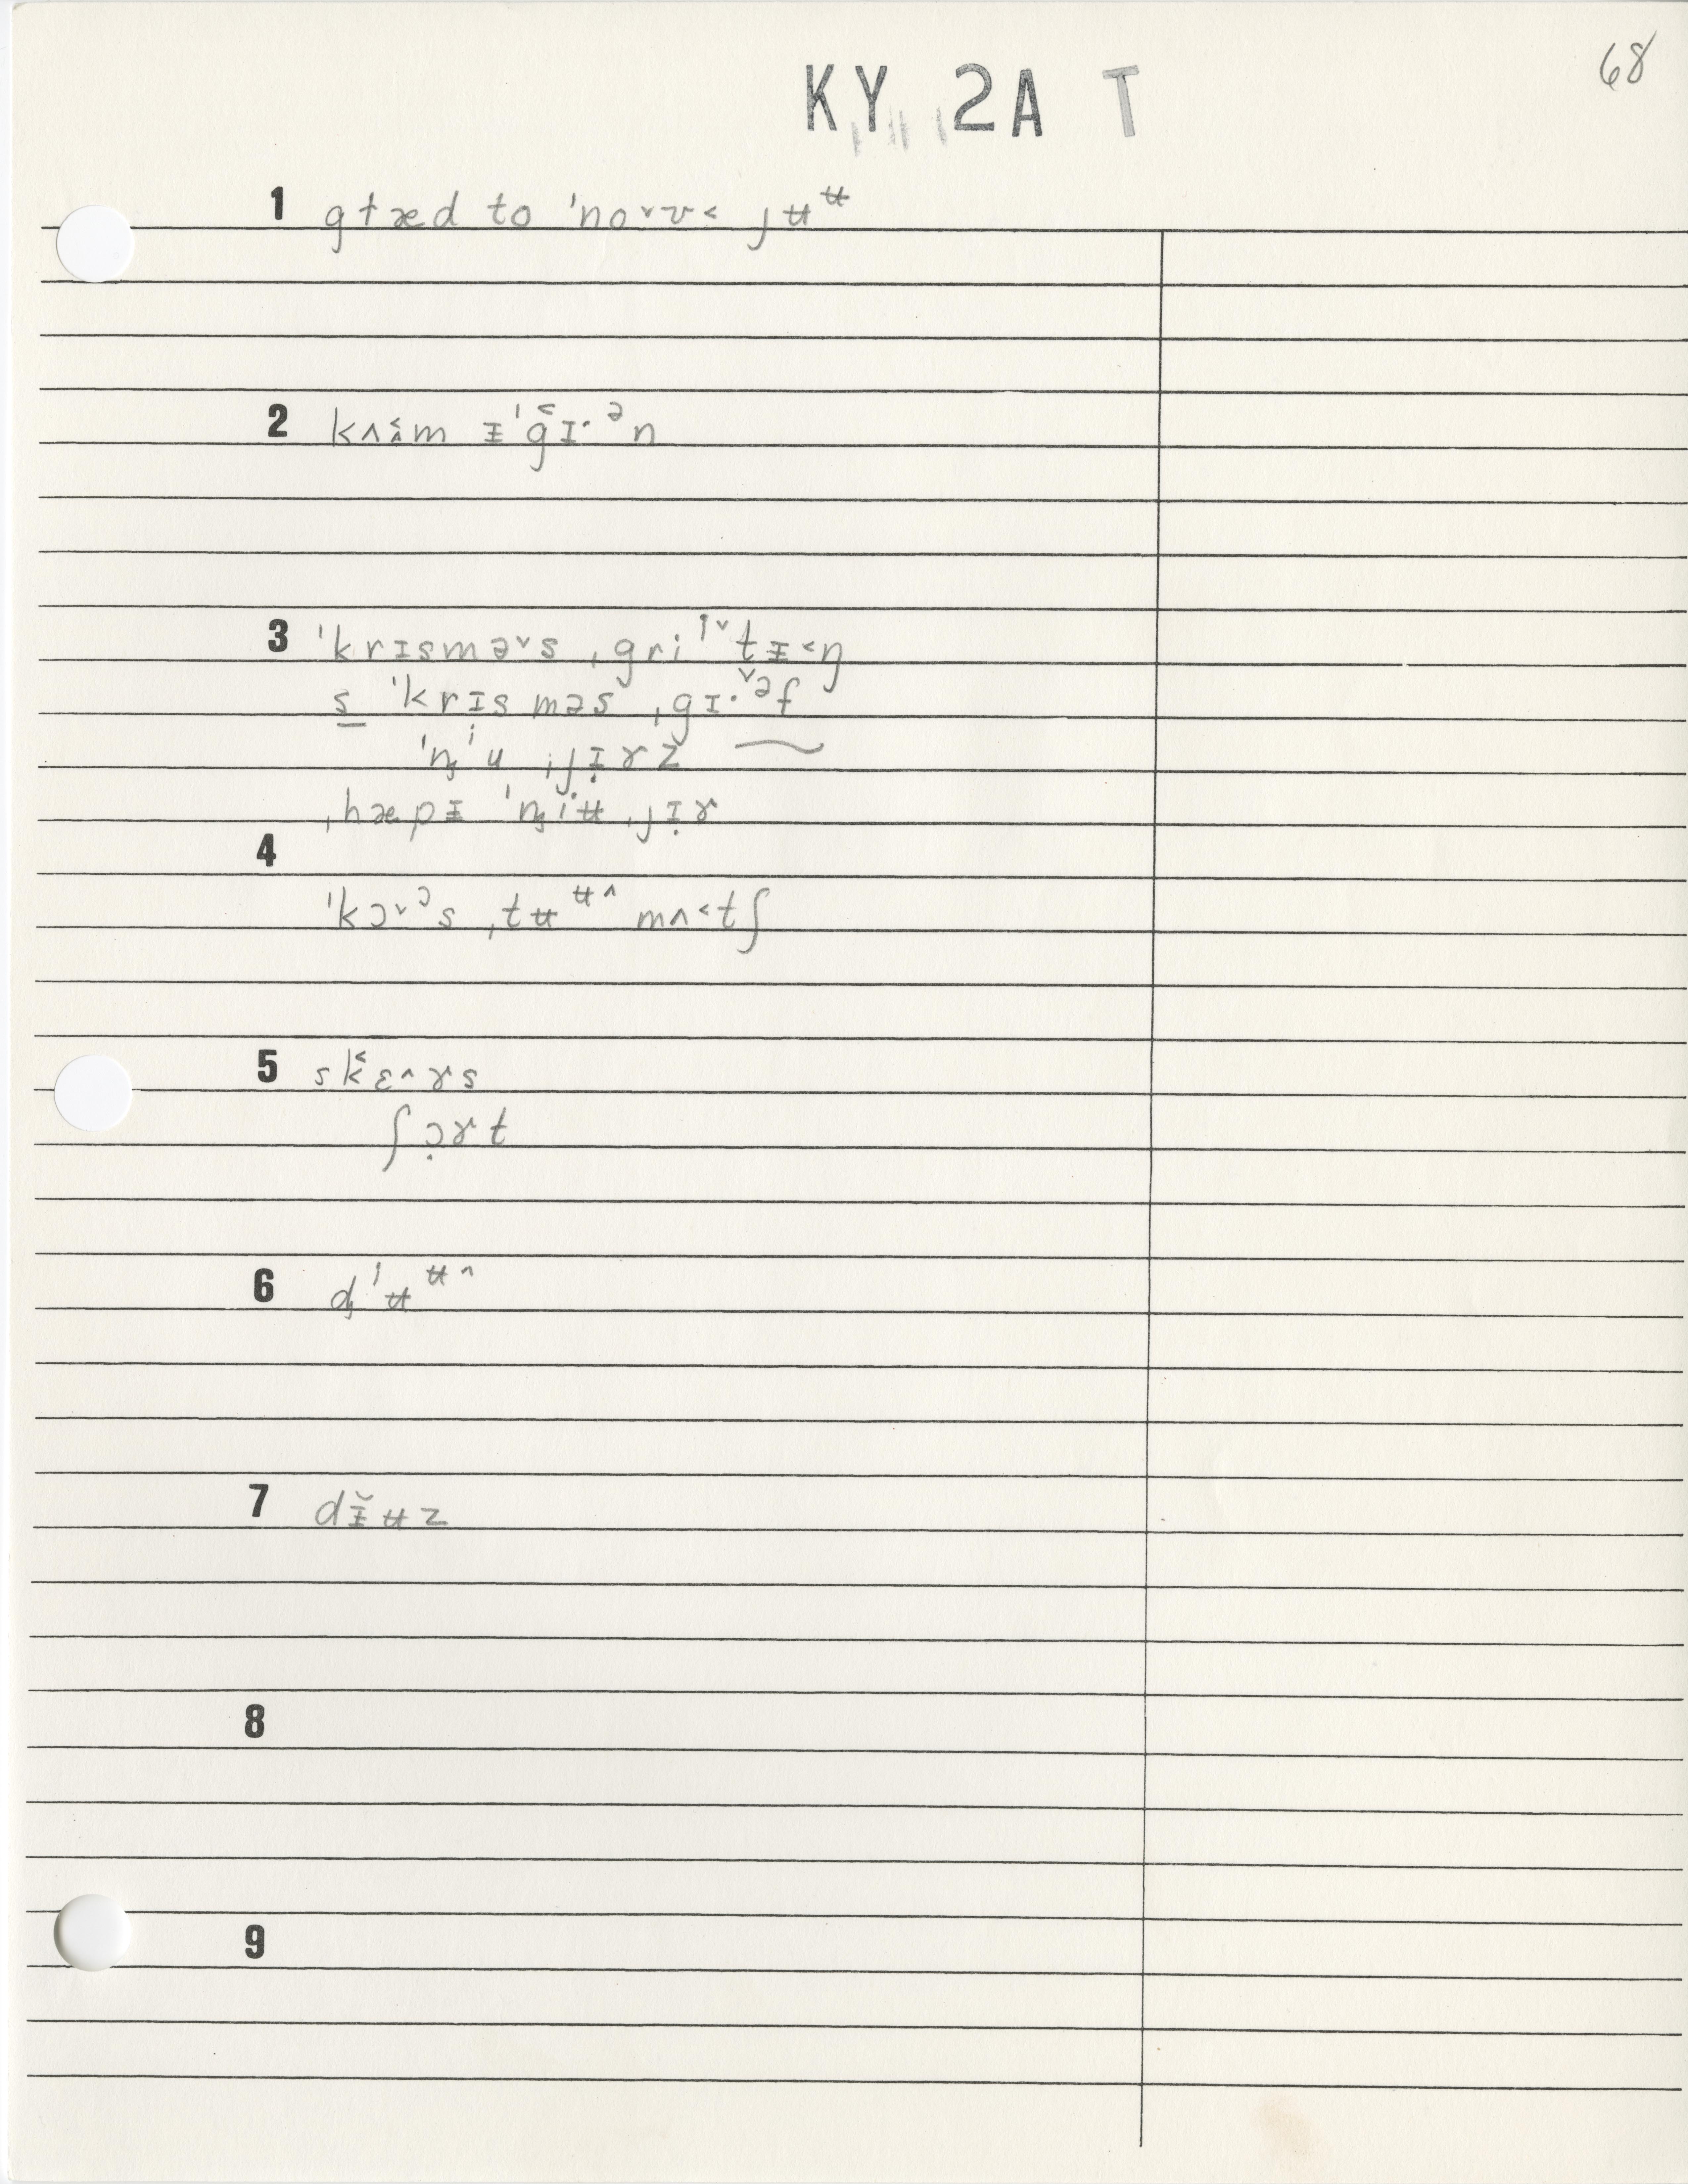 68
KY 2A T
1 gɫæd to ˈnoˇʊ˂ jʉᶶ̵
2 kʌ˂ʌ̵m ᵻˈg˂ɪ·ᵊn
3 ˈkrɪsməˇs ˌgriⁱˇtᵻ˂ŋ
s̲ ˈkrɪsməs ˌgɪ·ˇᵊf
ˈn̡ⁱu ˌjɪ̣ɚz̆
ˌhæpᵻ ˈn̡iʉ ˌjɪ̣ɚ
4
ˈkɔˇᵓs ˌtʉᶶ̵^ mʌ˂tʃ
5 sk˂ɛ^ɚs
ʃɔ̣ɚt
6 d̡ⁱʉᶶ̵^
7 dᵻ̆ʉz
8
9